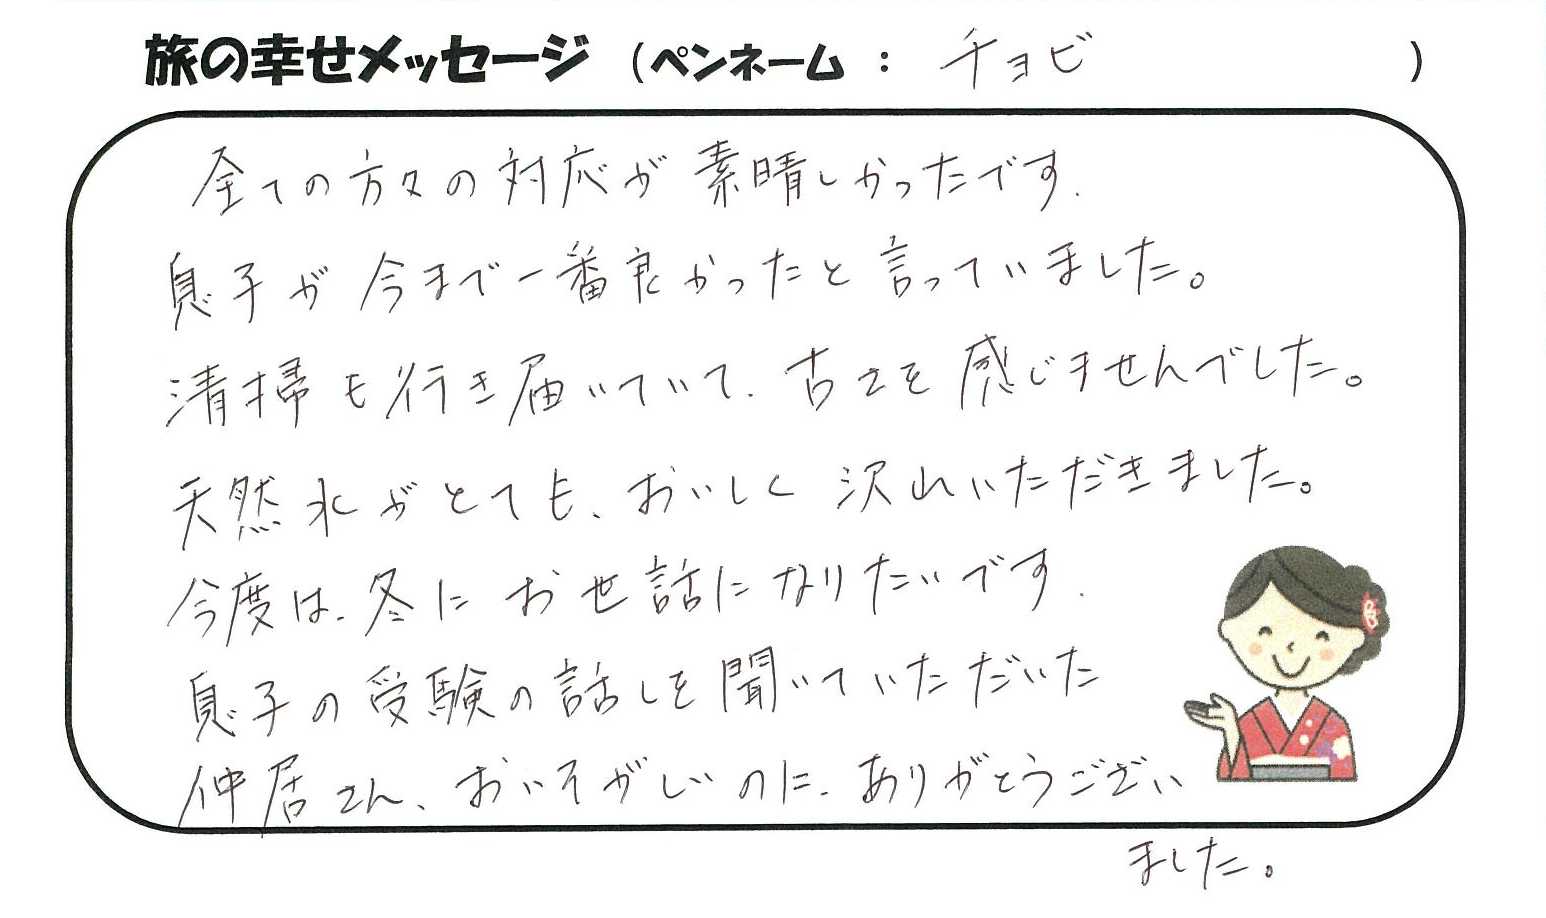 旅の幸せメッセージ (ペンネーム : チョビ )
全ての方々の対応が素晴しかったです.
息子が今まで一番良かったと言っていました。
清掃も行き届いていて、古さを感じませんでした。
天然水がとても、おいしく沢山いただきました。
今度は、冬にお世話になりたいです.
息子の受験の話しを聞いていただいた
仲居さん、おいそがしいのに、ありがとうござい
ました。